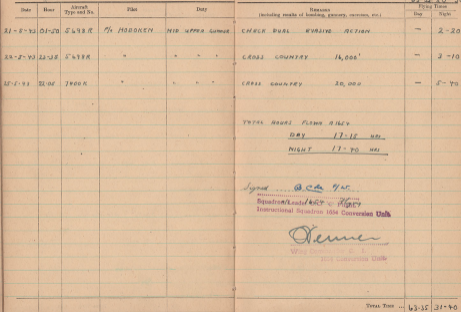 Date Hour Aircraft Type and No. Pilot Duty Remarks (including results of bombing, gunnery, exercises, etc.) Flying Times
Day Night
21-5-43 01-50 5648 R P/o MID UPPER GUNNER CHECK DUAL EVASIVE ACTION — 2-20
22-5-43 5648 R " " " " CROSS COUNTRY 16,000' — 3-10
25-5-43 " " " " CROSS COUNTRY 20,000 — 5-40
TOTAL HOURS FLOWN 1654
DAY 17-15 HRS
NIGHT 17-40 HRS
Signed
Squadron Leader
Instructional Squadron 1654 Conversion Unit
Conversion Unit
TOTAL TIME ... 63-35 31-40